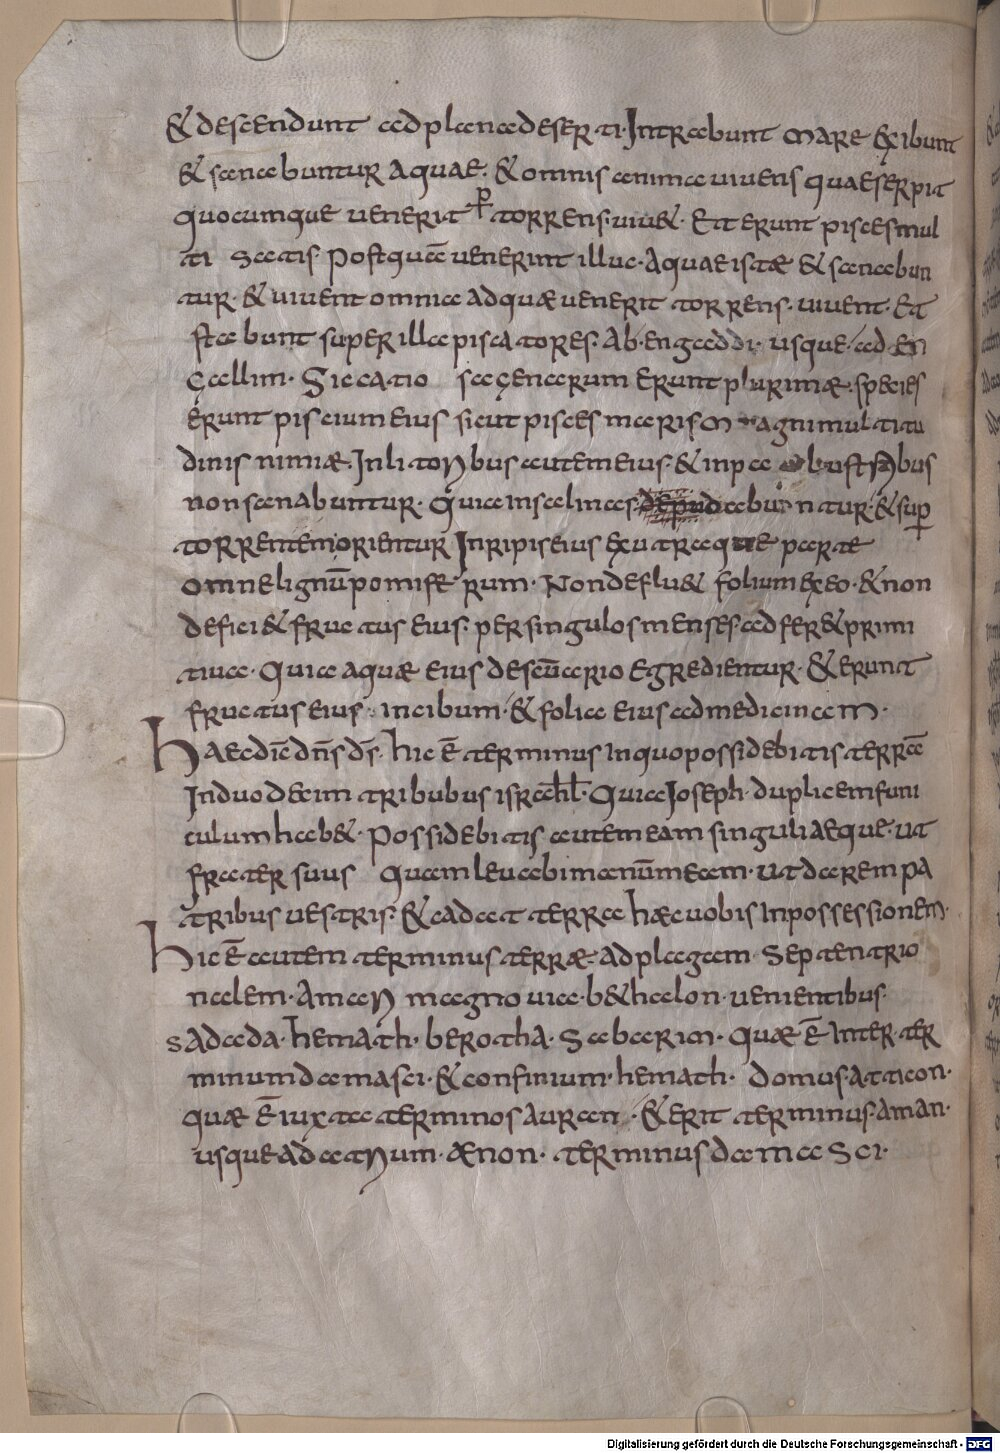 & descendunt ad plana deserti. Intrabunt mare & exibunt
& sanabuntur aquae. & omnis anima uiuens quae serpit
quocumque uenerit torrens. uiu&. Et erunt pisces mul
ti satis. Postquā uenerint illuc. Aquae istæ & sanabun
tur. & uiuent omnia ad quæ uenerit torrens. uiuent. Et
stabunt super illa piscatores. Ab engaddi. usque ad en
gallim. Siccatio sagenarum erunt plurimæ. species
erunt piscium eius sicut pisces maris magni multitu
dinis nimiæ. In litoribus autem eius. & in palustribus
non sanabuntur. Quia in salinas dabuntur. & sup
torrentem orientur In ripis eius ex utraque parte
omne lignū pomiferum. Non deflu& folium ex eo. & non
defici& fructus eius. per singulos menses adfer& primi
tiua. Quia aquæ eius de scūario egredientur. & erunt
fructus eius. in cibum. & folia eius ad medicinam.
Haec dic̄ dn̄s ds̄. hic ē terminus In quo possidebitis terrā
In duodecim tribubus isrl̄. Quia Joseph. duplicem funi
culum hab&. Possidebitis autem eam singuli aeque. ut
frater suus Quam leuabi manūm eam. ut darem pa
tribus uestris. & cadat terra hæc uobis In possessionem.
Hic ē autem terminus terræ Ad plagam. Septentrio
nalem. A mari magno uia. b&halon. uenientibus.
sadada. hemath. berotha. Sabarim. quæ ē Inter. ter
minum damasci. & confinium. hemath. domus. atticon.
quæ ē iuxta terminos auran. & erit terminus. A mari.
usque ad atrium. ænon. terminus damasci.